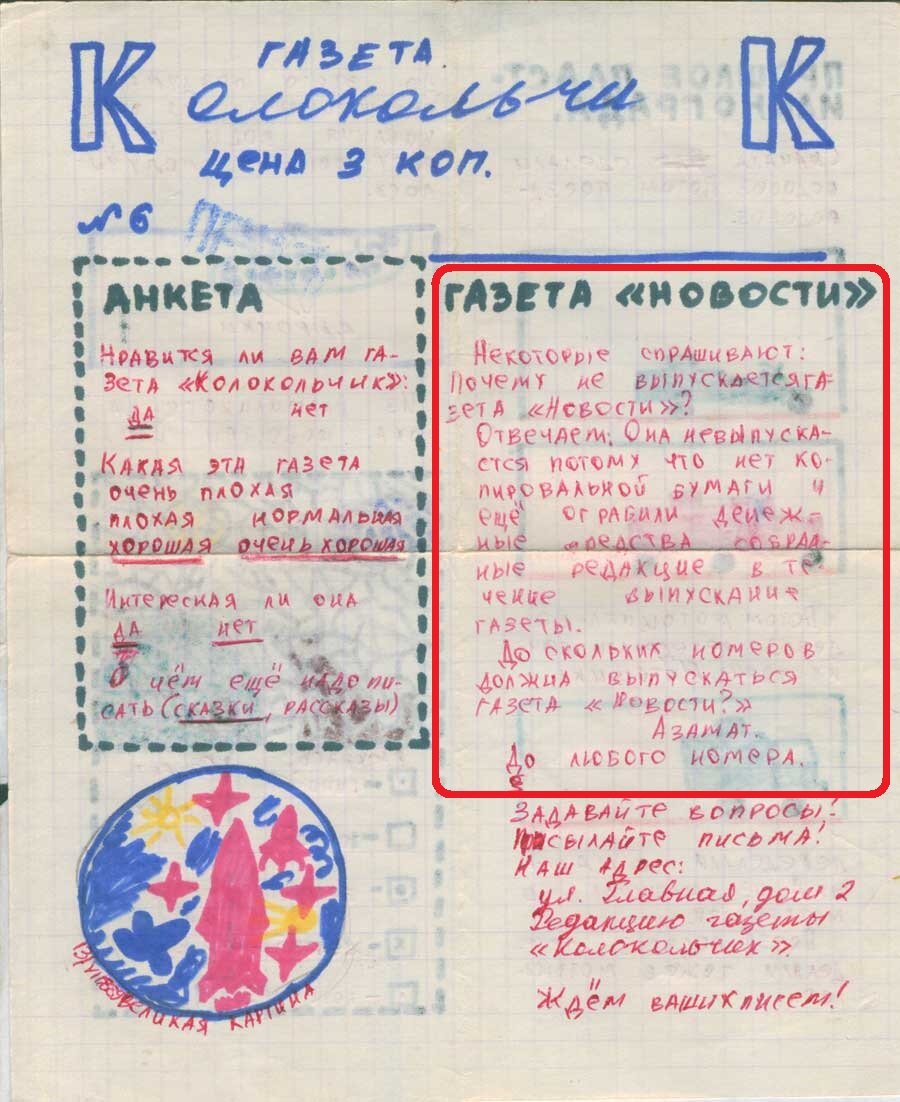 ГАЗЕТА
К Олокольчи К
ЦЕНА 3 КОП.
№ 6
АНКЕТА
Нравится ли вам га-
зета «Колокольчик»:
да нет
Какая эта газета
очень плохая
плохая нормальная
хорошая очень хорошая
Интересная ли она
да нет
О чём ещё надо пи-
сать (сказки, рассказы)
13/VII
ВЕЛИКАЯ КАРТИНА
ГАЗЕТА «НОВОСТИ»
Некоторые спрашивают:
Почему не выпускается га-
зета «Новости»?
Отвечаем. Она невыпуска-
ется потому что нет ко-
пировальной бумаги и
ещё ограбили денеж-
ные средства собран-
ные редакцие в те-
чение выпускание
газеты.
До скольких номеров
должна выпускаться
газета «Новости?»
Азамат.
До любого номера.
Задавайте вопросы!
Присылайте письма!
Наш адрес:
ул. Главная, дом 2
Редакцию газеты
«Колокольчик».
Ждём ваших писем!